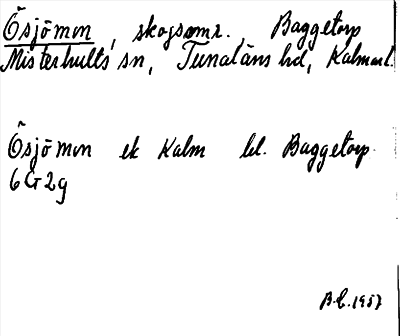 Ösjömon, skogsomr., Baggetorp
Misterhults sn, Tunaläns hd, Kalmar l.
Ösjömon ek Kalm bl. Baggetorp
6G2g
B.E. 1957